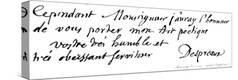 Cependant Monseigneur j'auray l'honneur
de vous porter mon Art poetique
vostre tres humble et
tres obeissant serviteur Despreaux